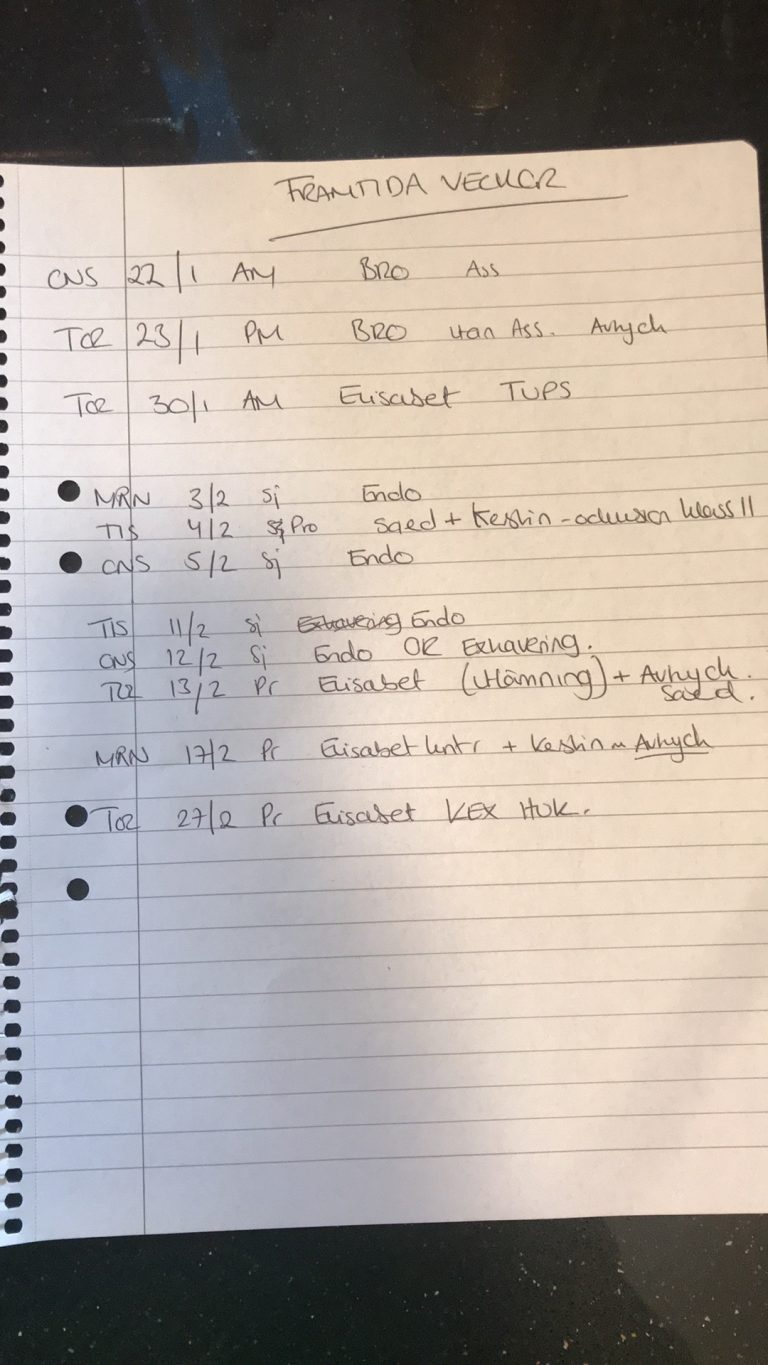 FRAMTIDA VECKOR
ONS 22/1 AM BRO Ass
TOR 23/1 PM BRO utan Ass. Avtryck
TOR 30/1 AM Elisabet TUPS
MÅN 3/2 Sj Endo
TIS 4/2 Pro Saed + Kerstin - ocklusion klass II
ONS 5/2 Sj Endo
TIS 11/2 Sj Endo
ONS 12/2 Sj Endo OR Exkavering.
TOR 13/2 Pr Elisabet (Utlämning) + Avtryck.
Saed.
MÅN 17/2 Pr Elisabet kntr + Kerstin Avtryck
TOR 27/2 Pr Elisabet KEX HUK.